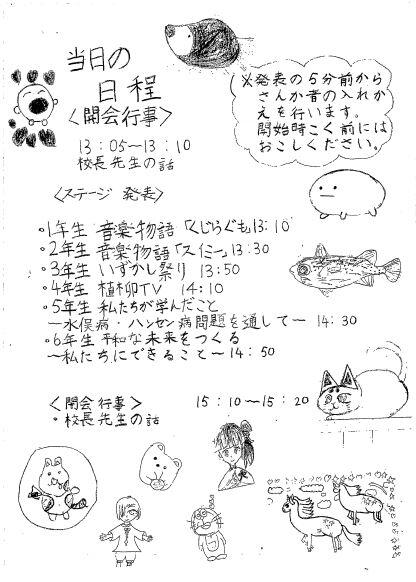 当日の
日程
<開会行事>
13:05~13:10
校長先生の話
※発表の5分前から
さんか者の入れか
えを行います。
開始時こく前には
おこしください。
<ステージ発表>
・1年生 音楽物語「くじらぐも」13:10
・2年生 音楽物語「スイミー」13:30
・3年生 いずかし祭り 13:50
・4年生 植柳TV 14:10
・5年生 私たちが学んだこと
~水俣病・ハンセン病問題を通して~ 14:30
・6年生 平和な未来をつくる
~私たちにできること~ 14:50
<閉会行事> 15:10~15:20
・校長先生の話